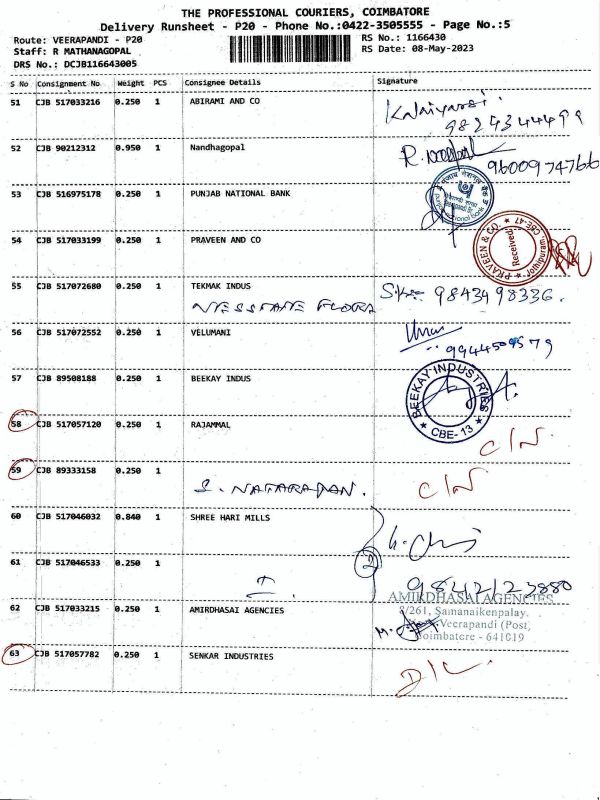 THE PROFESSIONAL COURIERS, COIMBATORE
Delivery Runsheet - P20 - Phone No.:0422-3505555 - Page No.:5
Route: VEERAPANDI - P20 RS No.: 1166430
Staff: R MATHANAGOPAL RS Date: 08-May-2023
DRS No.: DCJB116643005
S No Consignment No Weight PCS Consignee Details Signature
51 CJB 517033216 0.250 1 ABIRAMI AND CO
9824344499
52 CJB 90212312 0.950 1 Nandhagopal
9600974766
53 CJB 516975178 0.250 1 PUNJAB NATIONAL BANK
54 CJB 517033199 0.250 1 PRAVEEN AND CO
PRAVEEN & CO. Received Jothipuram, CBE-47
55 CJB 517072680 0.250 1 TEKMAK INDUS 9843498336.
56 CJB 517072552 0.250 1 VELUMANI
9944509579
57 CJB 89508188 0.250 1 BEEKAY INDUS
BEEKAY INDUSTRIES CBE-13
58 CJB 517057120 0.250 1 RAJAMMAL C/N
59 CJB 89333158 0.250 1
S. NATARAJAN. C/N
60 CJB 517046032 0.840 1 SHREE HARI MILLS
61 CJB 517046533 0.250 1 2
9842123880
AMIRDHASAI AGENCIES
62 CJB 517033215 0.250 1 AMIRDHASAI AGENCIES 3/261, Samanaikenpalay.
Veerapandi (Post)
Coimbatore - 641019
63 CJB 517057782 0.250 1 SENKAR INDUSTRIES
D/L.